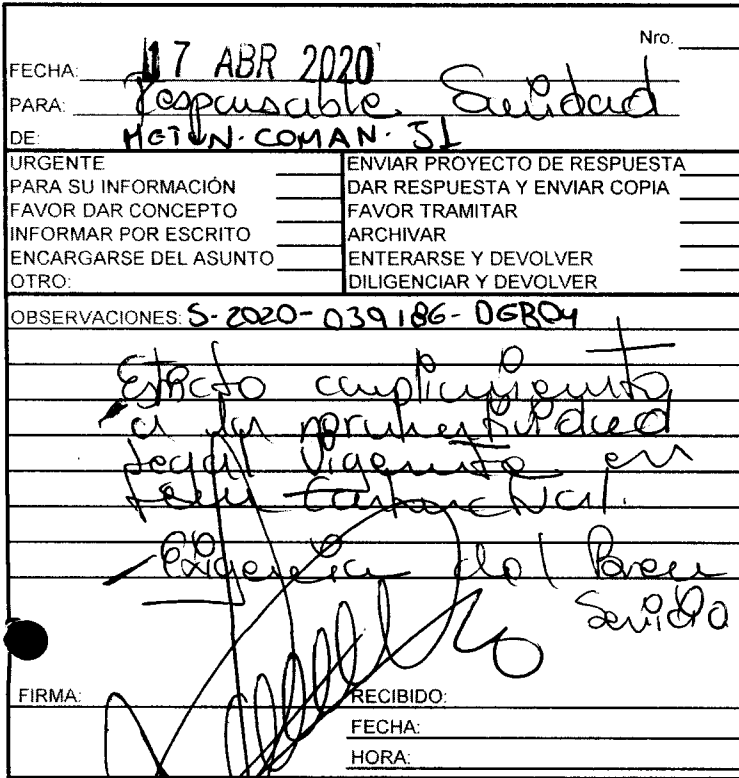 Nro.
FECHA: 17 ABR 2020
PARA: Responsable Sanidad
DE: METUN-COMAN-
URGENTE
PARA SU INFORMACIÓN
FAVOR DAR CONCEPTO
INFORMAR POR ESCRITO
ENCARGARSE DEL ASUNTO
OTRO:
ENVIAR PROYECTO DE RESPUESTA
DAR RESPUESTA Y ENVIAR COPIA
FAVOR TRAMITAR
ARCHIVAR
ENTERARSE Y DEVOLVER
DILIGENCIAR Y DEVOLVER
OBSERVACIONES: S-2020-039186-
Estricto cumplimiento
a la normatividad
legal vigente en
- Exigencia del Buen
Servicio
FIRMA:
RECIBIDO:
FECHA:
HORA: